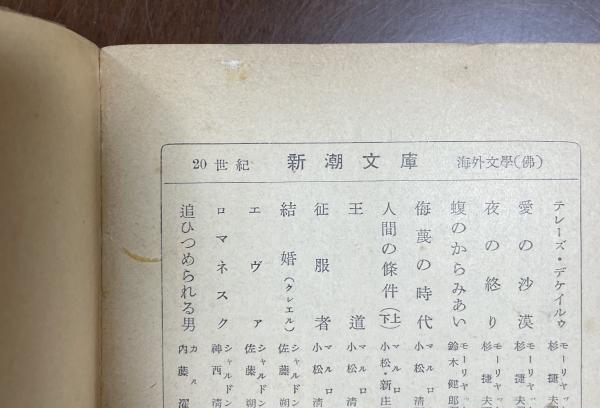 20世紀 新潮文庫 海外文學(佛)
テレーズ・デケイルゥ モーリヤッ 杉捷夫
愛の沙漠 モーリヤッ 杉捷夫
夜の終り モーリヤッ 杉捷夫
蝮のからみあい モーリヤッ 鈴木健郎
侮蔑の時代 マルロ 小松清
人間の條件(上下) マルロ 小松・新庄
王道 マルロ 小松清
征服者 マルロ 小松清
結婚(クレエル) シャルドン 佐藤朔
エヴァ シャルドン 佐藤朔
ロマネスク シャルドン 神西清
追ひつめられる男 カル 内藤濯